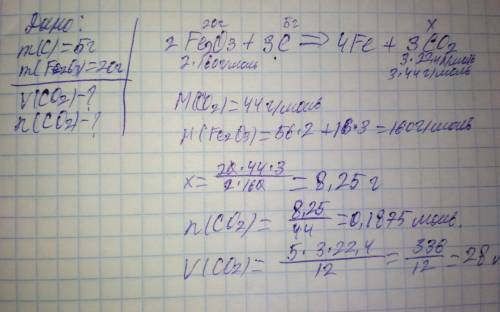 Дано:
m(C)=5г
m(Fe2O3)=20г
V(CO2)-?
n(CO2)-?
20г 5г x
2Fe2O3 + 3C => 4Fe + 3CO2
2·160г/моль 3·22,4л/моль
3·44г/моль
M(CO2)=44г/моль
M(Fe2O3)=56·2+16·3=160г/моль
x=20·44·3/2·160=8,25г
n(CO2)=8,25/44=0,1875моль.
V(CO2)=5·3·22,4/12=336/12=28л